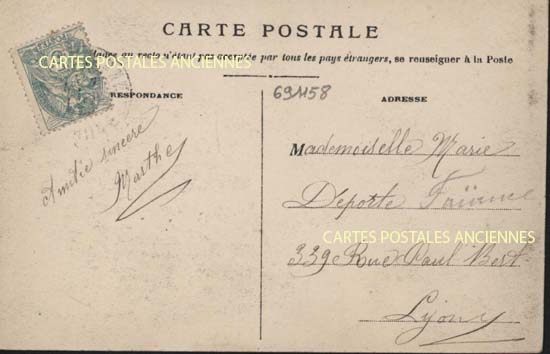 CARTE POSTALE
au recto n'étant pas acceptée par tous les pays étrangers, se renseigner à la Poste
CARTES POSTALES ANCIENNES
RESPONDANCE
691158
ADRESSE
Amitié sincère
Marthe
Mademoiselle Marie
Deporte
CARTES POSTALES ANCIENNES
339 Rue Paul Bert
Lyon